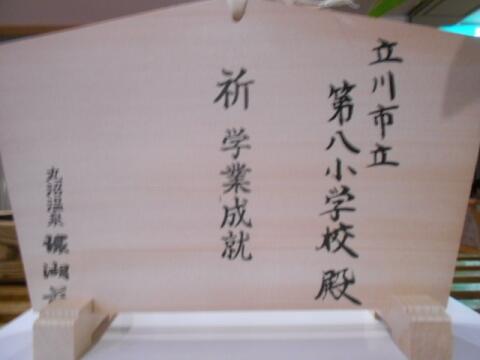 立川市立
第八小学校殿
祈 学業成就
丸沼温泉
環湖荘